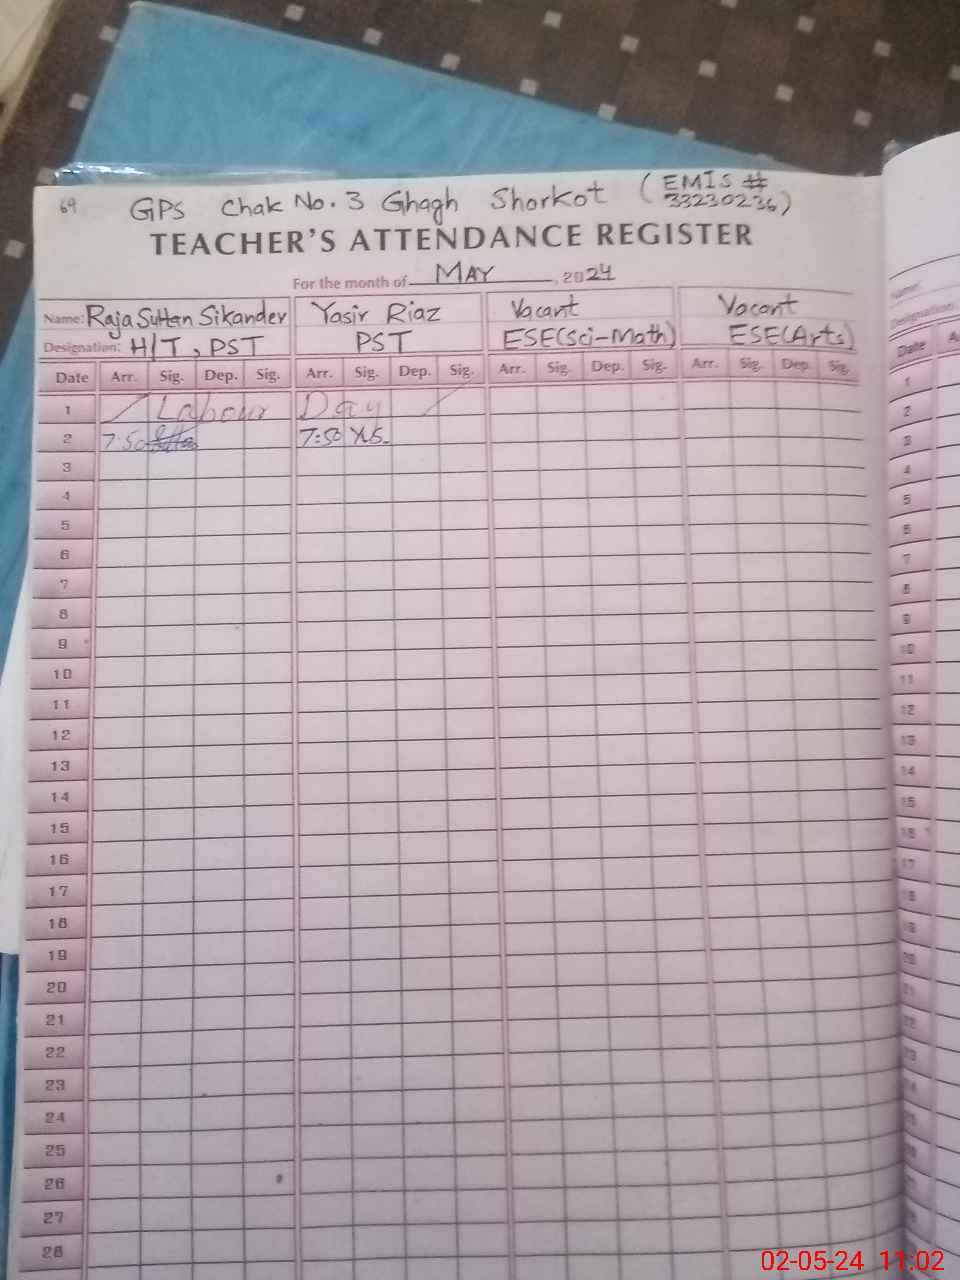 69
GPS Chak No. 3 Ghagh Shorkot (EMIS # 33230236)
TEACHER'S ATTENDANCE REGISTER
For the month of MAY, 2024
Name: Raja Sultan Sikander Yasir Riaz Vacant Vacant
Designation: H/T, PST PST ESE(Sci-Math) ESE(Arts)
Date Arr. Sig. Dep. Sig. Arr. Sig. Dep. Sig. Arr. Sig. Dep. Sig. Arr. Sig. Dep. Sig.
1 Labour Day
2 7:50 7:50 Y.S.
3
4
5
6
7
8
9
10
11
12
13
14
15
16
17
18
19
20
21
22
23
24
25
26
27
28
Name:
Designation:
Date
1
2
3
4
5
6
7
8
9
10
11
12
13
14
15
16
17
02-05-24 11:02